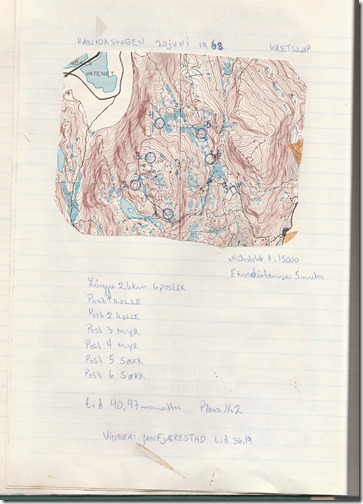 KANADASKOGEN 20 JUNI 1968 KRETSLØP
VATENET
Målestokk 1:15000
Ekvidistanse 5 meter
Lengde 2,6 km 6 poster
Post 1 KOLLE
Post 2 KOLLE
Post 3 MYR
Post 4 MYR
Post 5 SØKK
Post 6 SØKK
tid 40,47 minutter Plass Nr 2
VINNER: JAN FJÆRESTAD tid 36,19